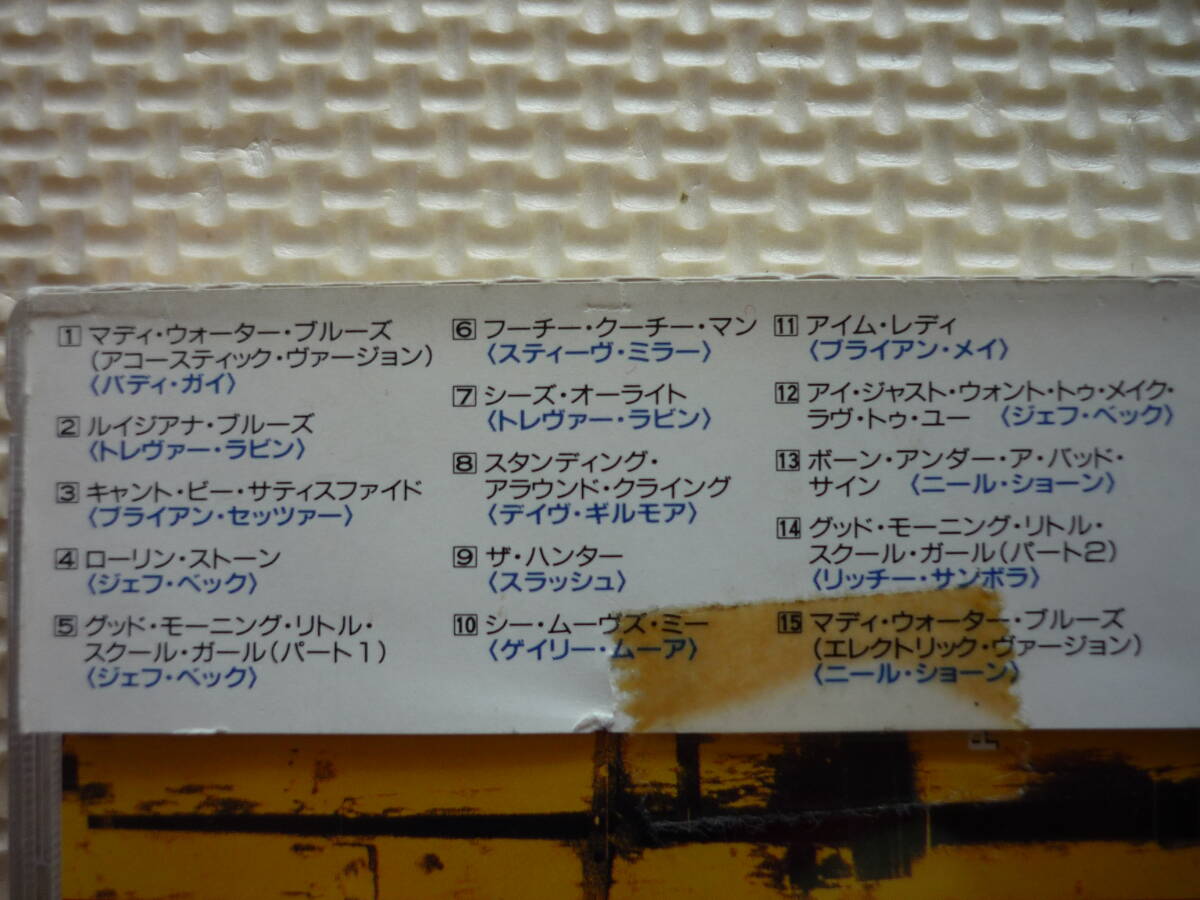 1 マディ・ウォーター・ブルーズ
(アコースティック・ヴァージョン)
〈バディ・ガイ〉
2 ルイジアナ・ブルーズ
〈トレヴァー・ラビン〉
3 キャント・ビー・サティスファイド
〈ブライアン・セッツァー〉
4 ローリン・ストーン
〈ジェフ・ベック〉
5 グッド・モーニング・リトル・
スクール・ガール(パート1)
〈ジェフ・ベック〉
6 フーチー・クーチー・マン
〈スティーヴ・ミラー〉
7 シーズ・オーライト
〈トレヴァー・ラビン〉
8 スタンディング・
アラウンド・クライング
〈デイヴ・ギルモア〉
9 ザ・ハンター
〈スラッシュ〉
10 シー・ムーヴズ・ミー
〈ゲイリー・ムーア〉
11 アイム・レディ
〈ブライアン・メイ〉
12 アイ・ジャスト・ウォント・トゥ・メイク・
ラヴ・トゥ・ユー 〈ジェフ・ベック〉
13 ボーン・アンダー・ア・バッド・
サイン 〈ニール・ショーン〉
14 グッド・モーニング・リトル・
スクール・ガール(パート2)
〈リッチー・サンボラ〉
15 マディ・ウォーター・ブルーズ
(エレクトリック・ヴァージョン)
〈ニール・ショーン〉